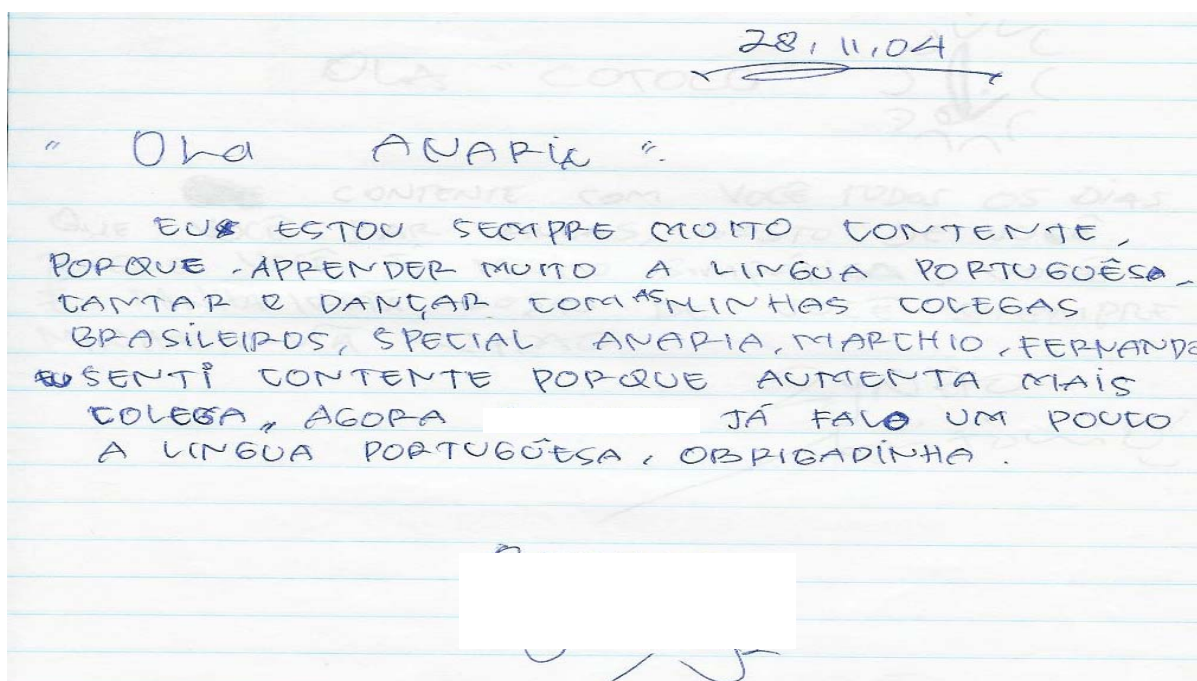 28.11.04
" Ola ANARIA ".
EU ESTOU SEMPRE MUITO CONTENTE,
PORQUE APRENDER MUITO A LINGUA PORTUGUÊSA,
CANTAR e DANÇAR COM AS MINHAS COLEGAS
BRASILEIROS, SPECIAL ANARIA, MARCHIO, FERNANDE
EU SENTI CONTENTE PORQUE AUMENTA MAIS
COLEGA, AGORA JÁ FALO UM POUCO
A LINGUA PORTUGÛESA, OBRIGADINHA.